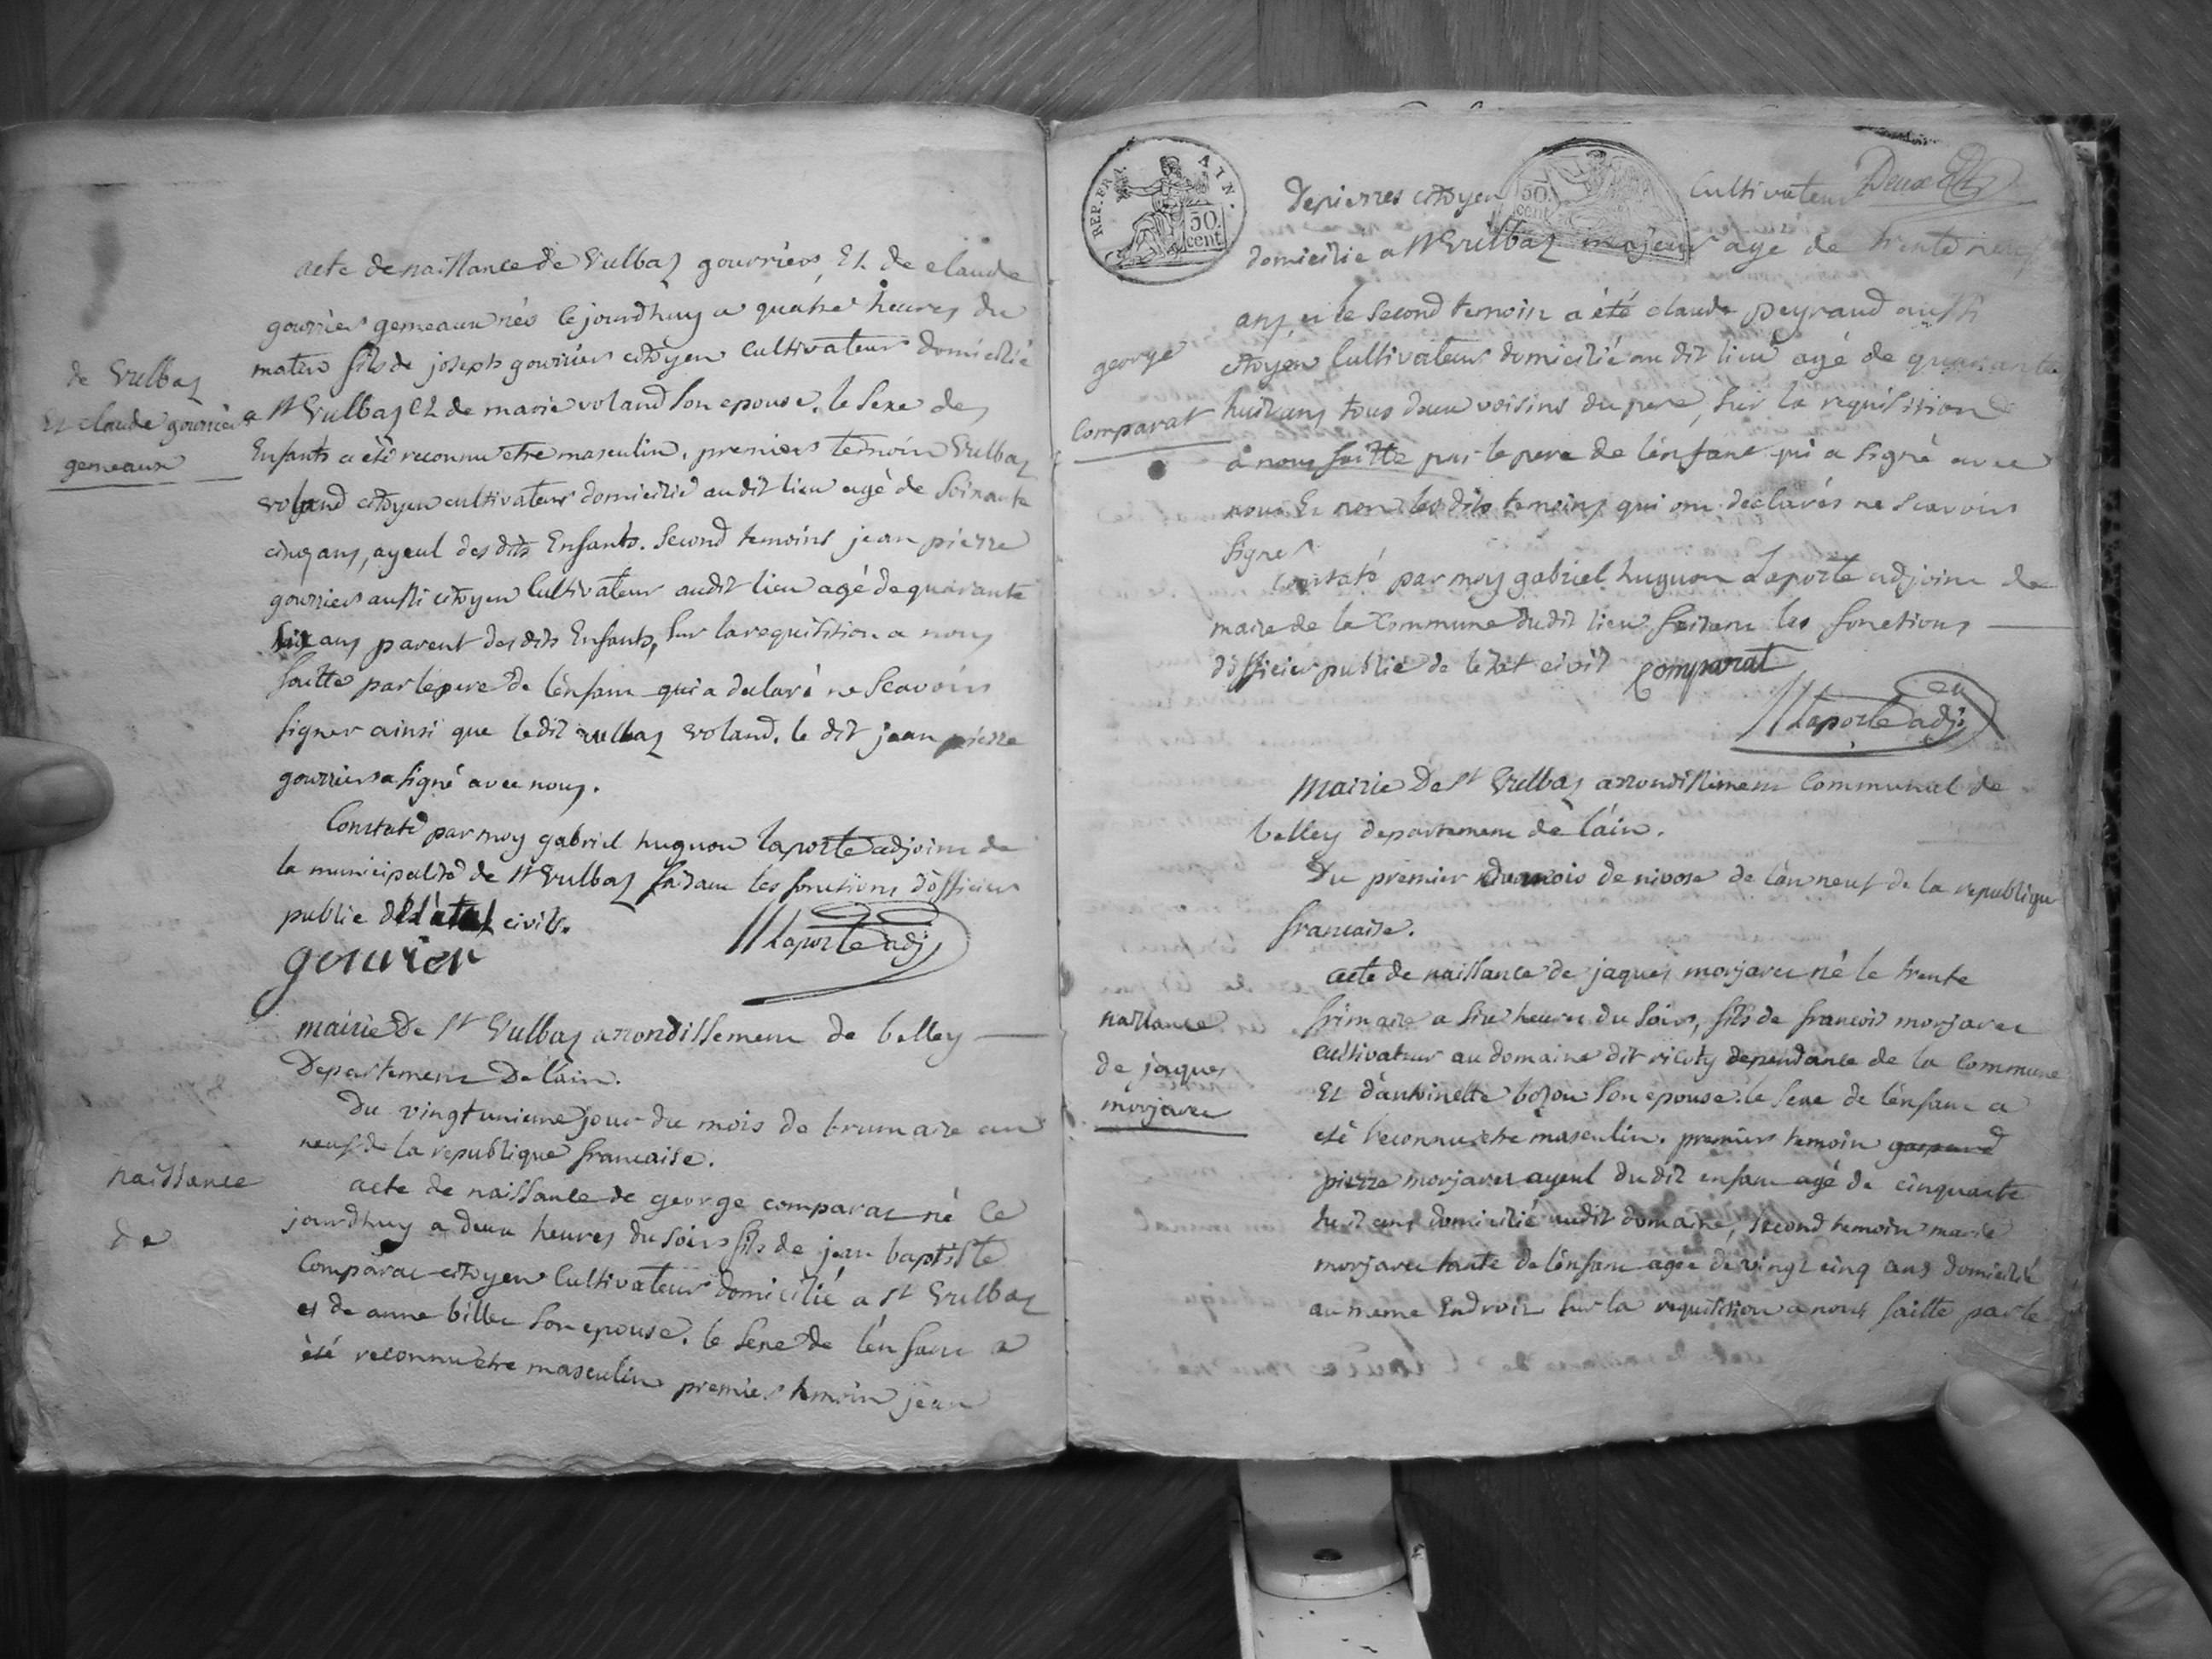 acte de naissance de Vulbaz gourrier, Et de claude
gourrier gemeaux nés cejourdhuy a quatre heures du
matin fils de joseph gourrier citoyen cultivateur domicilié
a st Vulbaz Et de marie voland son epouse. le sexe des
Enfants a été reconnu etre masculin. premier temoin Vulbaz
voland citoyen cultivateur domicilié audit lieu agé de soixante
cinq ans, ayeul des dits Enfants. second temoins jean pierre
gourrier aussi citoyen Cultivateur audit lieu agé de quarante
six ans parent des dits Enfants, sur la requisition a nous
faitte par le pere de l'enfant qui a declaré ne scavoir
signer ainsi que ledit vulbaz voland. le dit jean pierre
gourrier a signé avec nous.
Constaté par moy gabriel huguon laporte adjoint de
la municipalité de st Vulbaz faisant les fonctions d'officier
public de l'etat civil.
gourier
Laporte adj
de Vulbaz
Et claude gourrier
gemeaux
mairie De st Vulbaz arrondissement de belley
Departement De l'ain.
Du vingt unieme jour du mois de brumaire an
neuf de la republique francaise.
naissance
de
acte de naissance de george comparat né ce
jourdhuy a deux heures du soir fils de jean baptiste
Comparat citoyen Cultivateur domicilié a st Vulbaz
et de anne billet son epouse. le sexe de l'enfant a
été reconnu etre masculin premier temoin jean
REP. FRA.
AIN.
50
cent
50
cent
Depierres citoyen Cultivateur
domicilié a st Vulbaz majeur agé de trente neuf
ans, et le second temoin a été claude peyraud aussi
citoyen Cultivateur domicilié au dit lieu agé de quarante
huit ans tous deux voisins du pere, sur la requisition
a nous faitte par le pere de l'enfant qui a signé avec
nous Et non les dits temoins qui ont declarés ne scavoir
signer
george
Comparat
Constaté par moy gabriel huguon Laporte adjoint de
maire de la Commune dudit lieu faisant les fonctions
d'officier public de l'etat civil comparat
Laporte adj
Mairie De st Vulbaz arrondissement Communal de
belley departement de l'ain.
Du premier du mois de nivose de l'an neuf de la republique
francaise.
naissance
de jaques
morjaret
acte de naissance de jaques morjaret né le trente
frimaire a six heures du soir, fils de francois morjaret
cultivateur au domaine dit ricoty dependance de la Commune
Et d'antoinette bozon son epouse. le sexe de l'enfant a
eté reconnu etre masculin. premier temoin gaspard
pierre morjaret ayeul du dit enfant agé de cinquante
huit ans domicilié audit domaine, second temoin marie
morjaret tante de l'enfant agée de vingt cinq ans domicilié
au meme Endroit sur la requisition a nous faitte par le